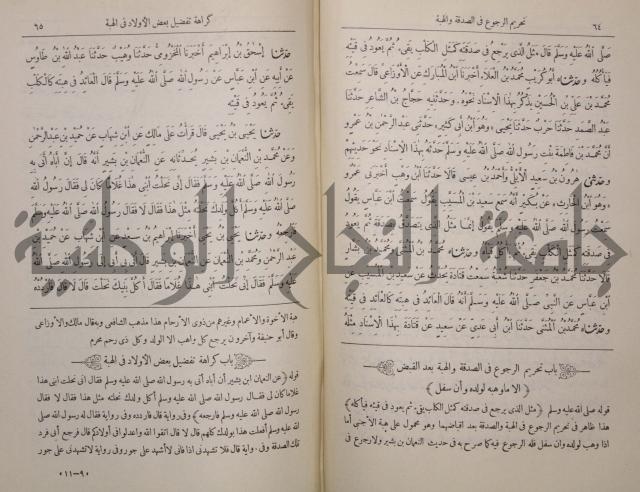 ٦٤
تحريم الرجوع في الصدقة والهبة
صَلَّى اللهُ عَلَيْهِ وَسَلَّمَ قَالَ مَثَلُ الَّذِي يَرْجِعُ فِي صَدَقَتِهِ كَمَثَلِ الْكَلْبِ يَقِيءُ ثُمَّ يَعُودُ فِي قَيْئِهِ
فَيَأْكُلُهُ وحَدَّثَنَاهُ أَبُو كُرَيْبٍ مُحَمَّدُ بْنُ الْعَلَاءِ أَخْبَرَنَا ابْنُ الْمُبَارَكِ عَنِ الْأَوْزَاعِيِّ قَالَ سَمِعْتُ
مُحَمَّدَ بْنَ عَلِيِّ بْنِ الْحُسَيْنِ يَذْكُرُ بِهَذَا الْإِسْنَادِ نَحْوَهُ وَحَدَّثَنِيهِ حَجَّاجُ بْنُ الشَّاعِرِ حَدَّثَنَا
عَبْدُ الصَّمَدِ حَدَّثَنَا حَرْبٌ حَدَّثَنَا يَحْيَى وَهُوَ ابْنُ أَبِي كَثِيرٍ حَدَّثَنِي عَبْدُ الرَّحْمَنِ بْنُ عَمْرٍو
أَنَّ مُحَمَّدَ بْنَ فَاطِمَةَ بِنْتِ رَسُولِ اللهِ صَلَّى اللهُ عَلَيْهِ وَسَلَّمَ حَدَّثَهُ بِهَذَا الْإِسْنَادِ نَحْوَ حَدِيثِهِمْ
وحَدَّثَنِي هَرُونُ بْنُ سَعِيدٍ الْأَيْلِيُّ وَأَحْمَدُ بْنُ عِيسَى قَالَا حَدَّثَنَا ابْنُ وَهْبٍ أَخْبَرَنِي عَمْرٌو
وَهُوَ ابْنُ الْحَارِثِ عَنْ بُكَيْرٍ أَنَّهُ سَمِعَ سَعِيدَ بْنَ الْمُسَيَّبِ يَقُولُ سَمِعْتُ ابْنَ عَبَّاسٍ يَقُولُ
سَمِعْتُ رَسُولَ اللهِ صَلَّى اللهُ عَلَيْهِ وَسَلَّمَ يَقُولُ إِنَّمَا مَثَلُ الَّذِي يَتَصَدَّقُ بِصَدَقَةٍ ثُمَّ يَعُودُ
فِي صَدَقَتِهِ كَمَثَلِ الْكَلْبِ يَقِيءُ ثُمَّ يَأْكُلُ قَيْئَهُ وحَدَّثَنَاهُ مُحَمَّدُ بْنُ الْمُثَنَّى وَمُحَمَّدُ بْنُ بَشَّارٍ
قَالَا حَدَّثَنَا مُحَمَّدُ بْنُ جَعْفَرٍ حَدَّثَنَا شُعْبَةُ سَمِعْتُ قَتَادَةَ يُحَدِّثُ عَنْ سَعِيدِ بْنِ الْمُسَيَّبِ عَنِ
ابْنِ عَبَّاسٍ عَنِ النَّبِيِّ صَلَّى اللهُ عَلَيْهِ وَسَلَّمَ أَنَّهُ قَالَ الْعَائِدُ فِي هِبَتِهِ كَالْعَائِدِ فِي قَيْئِهِ
وحَدَّثَنَاهُ مُحَمَّدُ بْنُ الْمُثَنَّى حَدَّثَنَا ابْنُ أَبِي عَدِيٍّ عَنْ سَعِيدٍ عَنْ قَتَادَةَ بِهَذَا الْإِسْنَادِ مِثْلَهُ
باب تحريم الرجوع في الصدقة والهبة بعد القبض
(الا ما وهبه لولده وأن سفل)
قوله صلى الله عليه وسلم (مثل الذي يرجع في صدقته كمثل الكلب يقيء ثم يعود في قيئه فيأكله)
هذا ظاهر في تحريم الرجوع في الهبة والصدقة بعد اقباضهما وهو محمول على هبة الأجنبي أما
اذا وهب لولده وان سفل فله الرجوع فيه كما صرح به في حديث النعمان بن بشير ولا رجوع في
كراهة تفضيل بعض الأولاد في الهبة
٦٥
حَدَّثَنَا إِسْحَقُ بْنُ إِبْرَاهِيمَ أَخْبَرَنَا الْمَخْزُومِيُّ حَدَّثَنَا وُهَيْبٌ حَدَّثَنَا عَبْدُ اللهِ بْنُ طَاوُسٍ
عَنْ أَبِيهِ عَنِ ابْنِ عَبَّاسٍ عَنْ رَسُولِ اللهِ صَلَّى اللهُ عَلَيْهِ وَسَلَّمَ قَالَ الْعَائِدُ فِي هِبَتِهِ كَالْكَلْبِ
يَقِيءُ ثُمَّ يَعُودُ فِي قَيْئِهِ
حَدَّثَنَا يَحْيَى بْنُ يَحْيَى قَالَ قَرَأْتُ عَلَى مَالِكٍ عَنِ ابْنِ شِهَابٍ عَنْ حُمَيْدِ بْنِ عَبْدِ الرَّحْمَنِ
وَعَنْ مُحَمَّدِ بْنِ النُّعْمَانِ بْنِ بَشِيرٍ يُحَدِّثَانِهِ عَنِ النُّعْمَانِ بْنِ بَشِيرٍ أَنَّهُ قَالَ إِنَّ أَبَاهُ أَتَى بِهِ
رَسُولَ اللهِ صَلَّى اللهُ عَلَيْهِ وَسَلَّمَ فَقَالَ إِنِّي نَحَلْتُ ابْنِي هَذَا غُلَامًا كَانَ لِي فَقَالَ رَسُولُ اللهِ
صَلَّى اللهُ عَلَيْهِ وَسَلَّمَ أَكُلَّ وَلَدِكَ نَحَلْتَهُ مِثْلَ هَذَا فَقَالَ لَا فَقَالَ رَسُولُ اللهِ صَلَّى اللهُ عَلَيْهِ وَسَلَّمَ
فَارْجِعْهُ وحَدَّثَنَا يَحْيَى بْنُ يَحْيَى أَخْبَرَنَا إِبْرَاهِيمُ بْنُ سَعْدٍ عَنِ ابْنِ شِهَابٍ عَنْ حُمَيْدِ بْنِ
عَبْدِ الرَّحْمَنِ وَمُحَمَّدِ بْنِ النُّعْمَانِ عَنِ النُّعْمَانِ بْنِ بَشِيرٍ قَالَ أَتَى بِي أَبِي إِلَى رَسُولِ اللهِ صَلَّى اللهُ
عَلَيْهِ وَسَلَّمَ فَقَالَ إِنِّي نَحَلْتُ ابْنِي هَذَا غُلَامًا فَقَالَ أَكُلَّ بَنِيكَ نَحَلْتَ قَالَ لَا قَالَ فَارْدُدْهُ
هبة الأخوة والأعمام وغيرهم من ذوى الأرحام هذا مذهب الشافعي وبه قال مالك والأوزاعي
وقال أبو حنيفة وآخرون يرجع كل واهب الا الولد وكل ذى رحم محرم
باب كراهة تفضيل بعض الأولاد في الهبة
قوله (عن النعمان ابن بشير أن أباه أتى به رسول الله صلى الله عليه وسلم فقال اني نحلت ابنى هذا
غلاما كان لى فقال رسول الله صلى الله عليه وسلم أكل ولدك نحلته مثل هذا فقال لا فقال
رسول الله صلى الله عليه وسلم فارجعه) وفى رواية قال فاردده وفى رواية فقال له رسول الله صلى
الله عليه وسلم أفعلت هذا بولدك كلهم قال لا قال اتقوا الله واعدلوا فى أولادكم فرجع أبى فرد
تلك الصدقة وفى رواية قال فلا تشهدنى اذا فانى لا أشهد على جور وفى رواية لا تشهدنى على جور
٩ — ١١
جامعة النجاح الوطنية